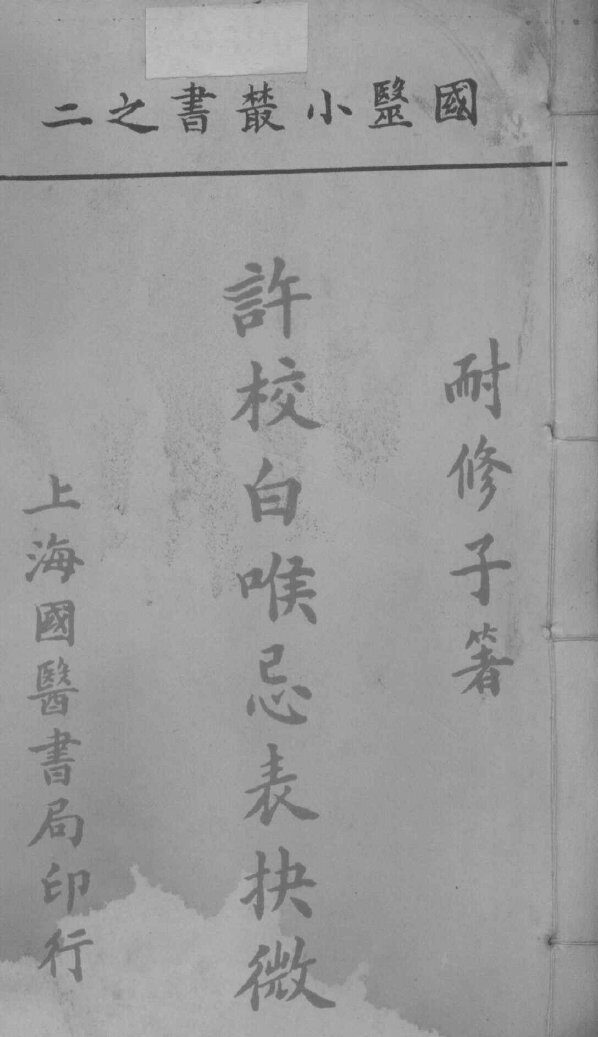 國毉小叢書之二
耐修子箸
許校白喉忌表抉微
上海國醫書局印行